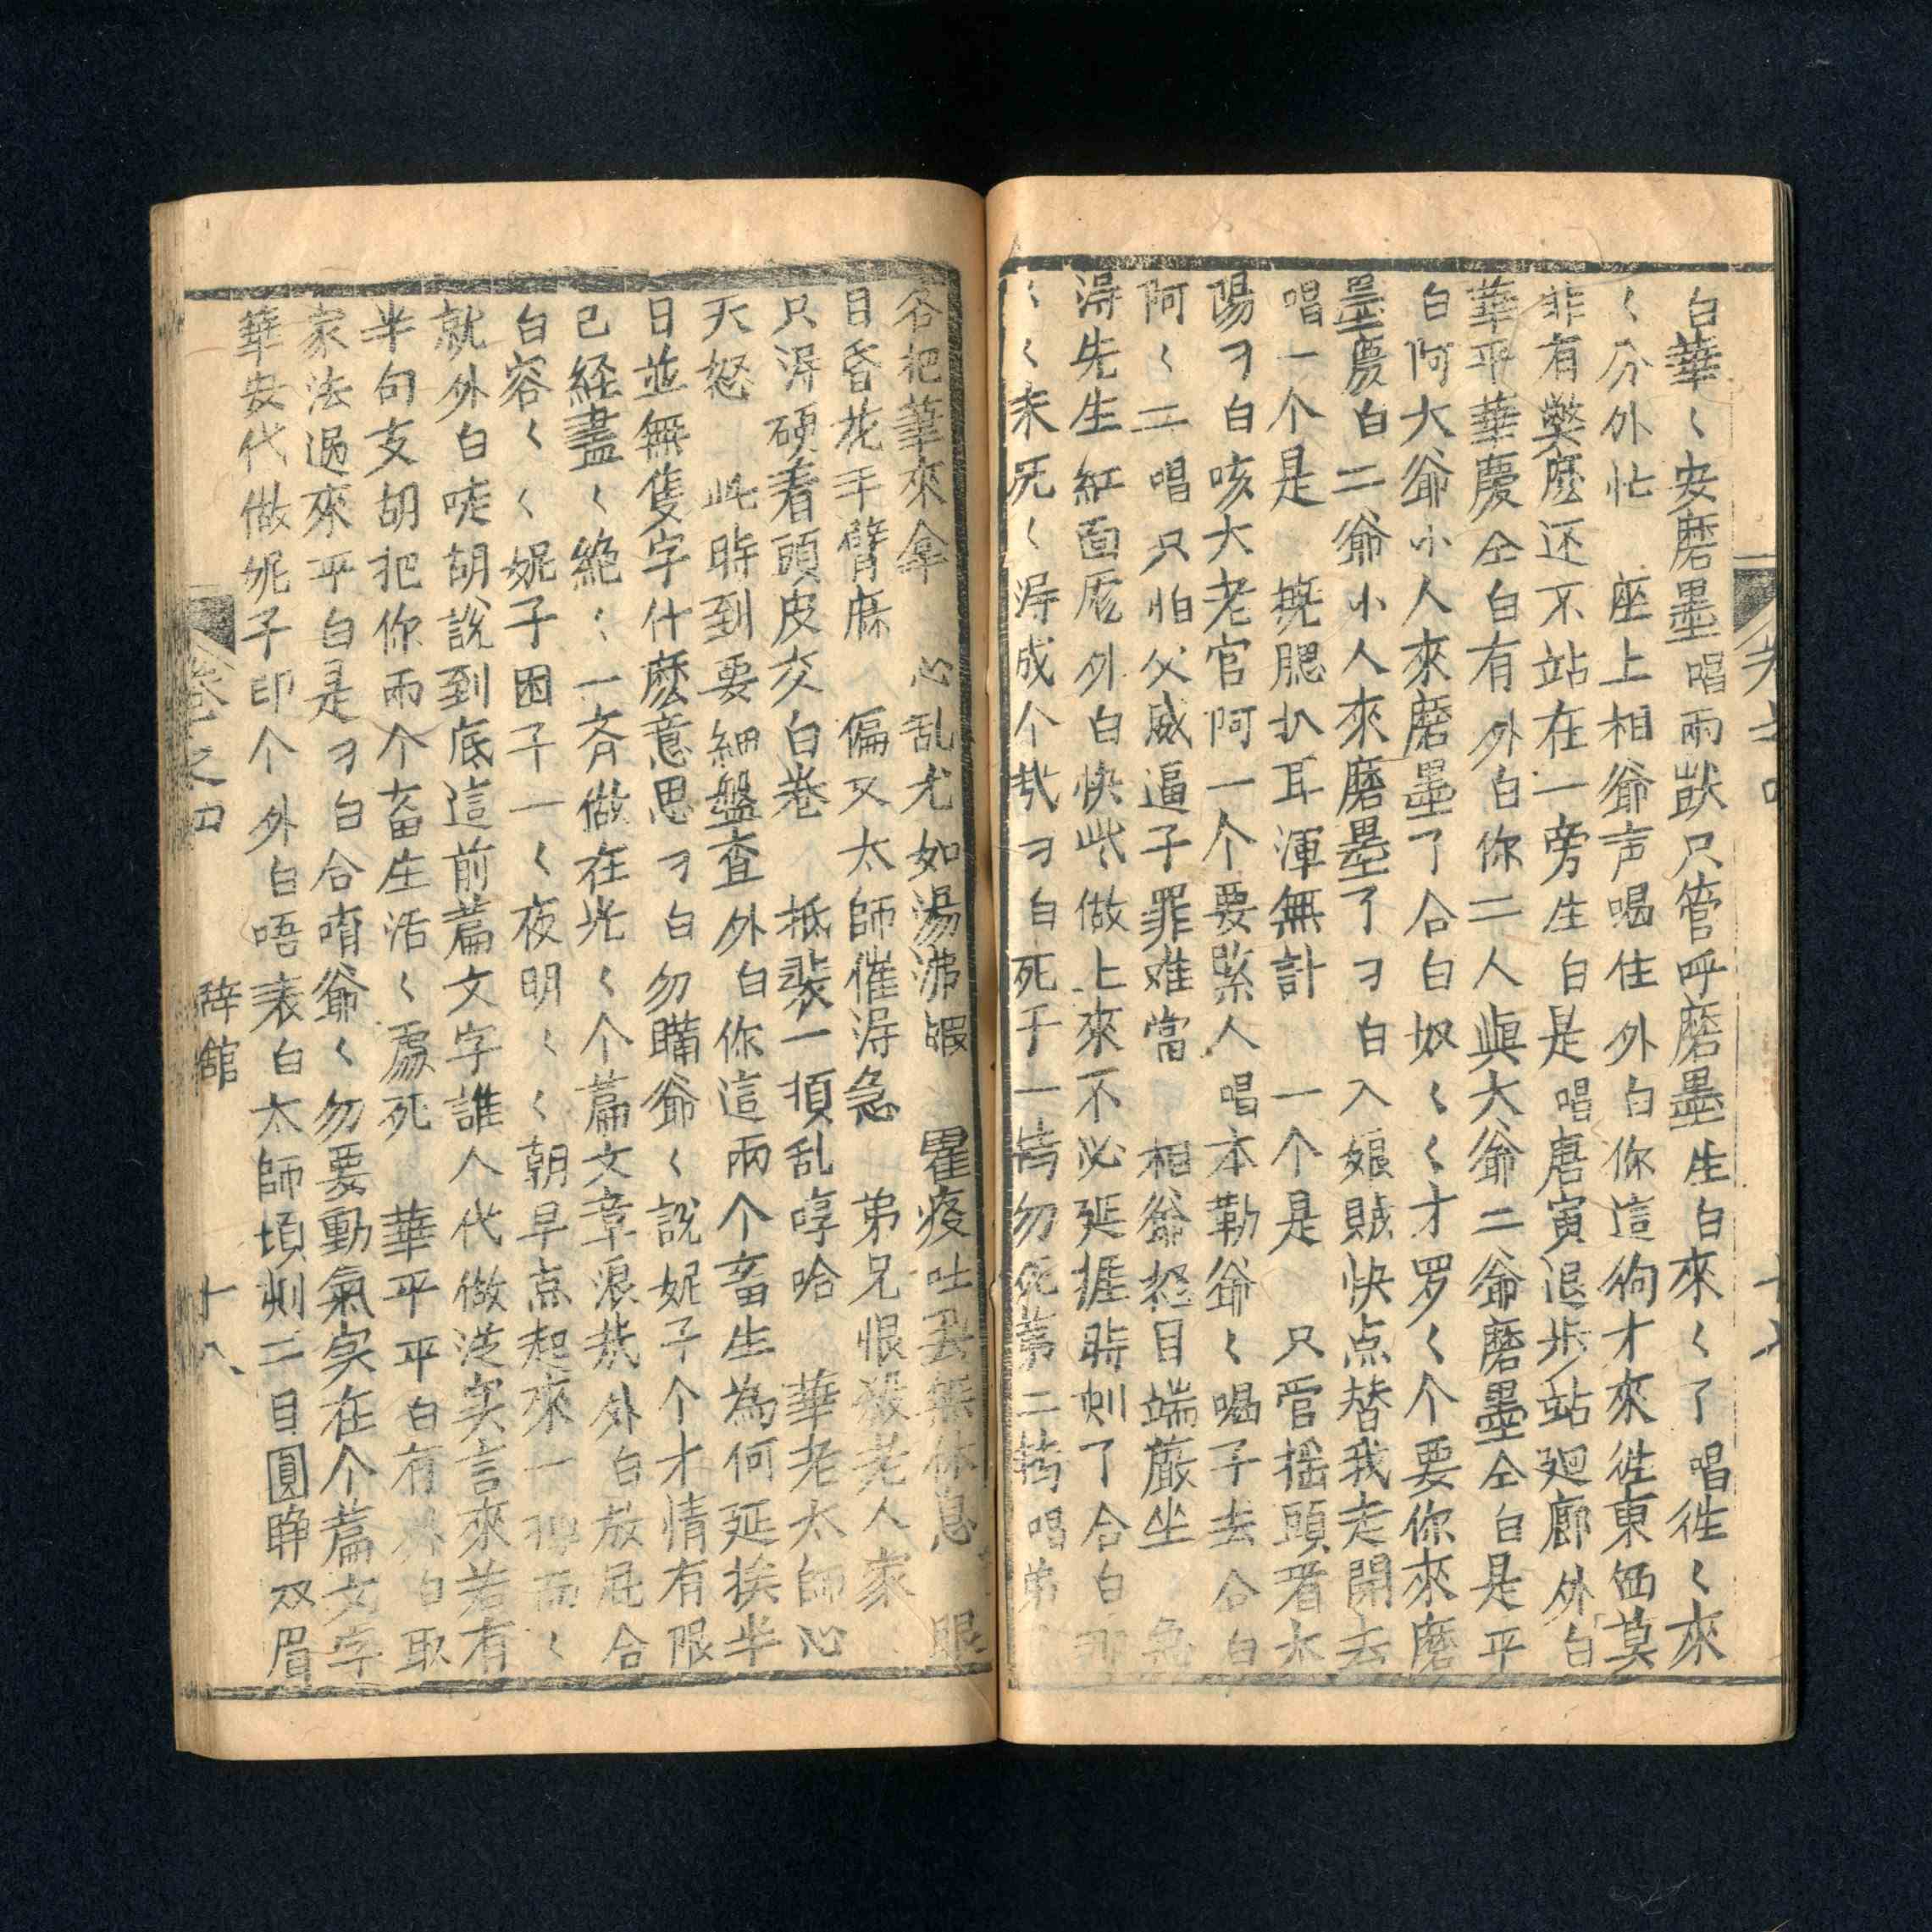 白華〱安磨墨唱兩獃只管呼磨墨生白來〱了唱徃〱來
〱分外忙 座上相爺声喝住外白你這狗才來徃東西莫
非有獘麽还不站在一旁生白是唱唐寅退步站廻廊外白
華平華慶仝白有外白你二人與大爺二爺磨墨仝白是平
白阿大爺小人來磨墨了合白奴〱〱才罗〱个要你來磨
墨慶白二爺小人來磨墨了丑白入娘賊快点替我走開去
唱一个是 抚腮扒耳渾無計 一个是 只管摇頭看水
陽丑白咳大老官阿一个要緊人唱本勒爺〱喝子去合白
阿〱二唱只怕父威逼子罪难當 相爺怒目端嚴坐 急
淂先生紅面厐外白快些做上來不必延捱時刻了合白
〱〱未死〱淂成个哉丑白死于一儔勿死第二儔唱弟
各把筆來拿 心乱尤如湯沸 瞿疫吐丑無休息 眼
目昏花手臂麻 偏又太師催淂急 弟兄恨殺老人家
只淂硬着頭皮交白卷 抵裝一頂乱哼哈 華老太師心
大怒 此時到要細盤査外白你這兩个畜生為何延挨半
日並無隻字什麽意思丑白勿瞞爺〱說妮子个才情有限
已経盡〱絶〱一斉做在光〱个篇文章浪哉外白放屁合
白容〱〱妮子困子一〱夜明〱〱朝早点起來一 〱
就外白唗胡說到底這前篇文字誰人代做从实言來若有
半句支胡把你兩个畜生活〱處死 華平平白有外白取
家法過來平白是丑白合唷爺〱勿要動氣实在个篇文字
華安代做妮子印个外白唔表白太師頃刻二目圓睁双眉
卷之四 辞舘 十八